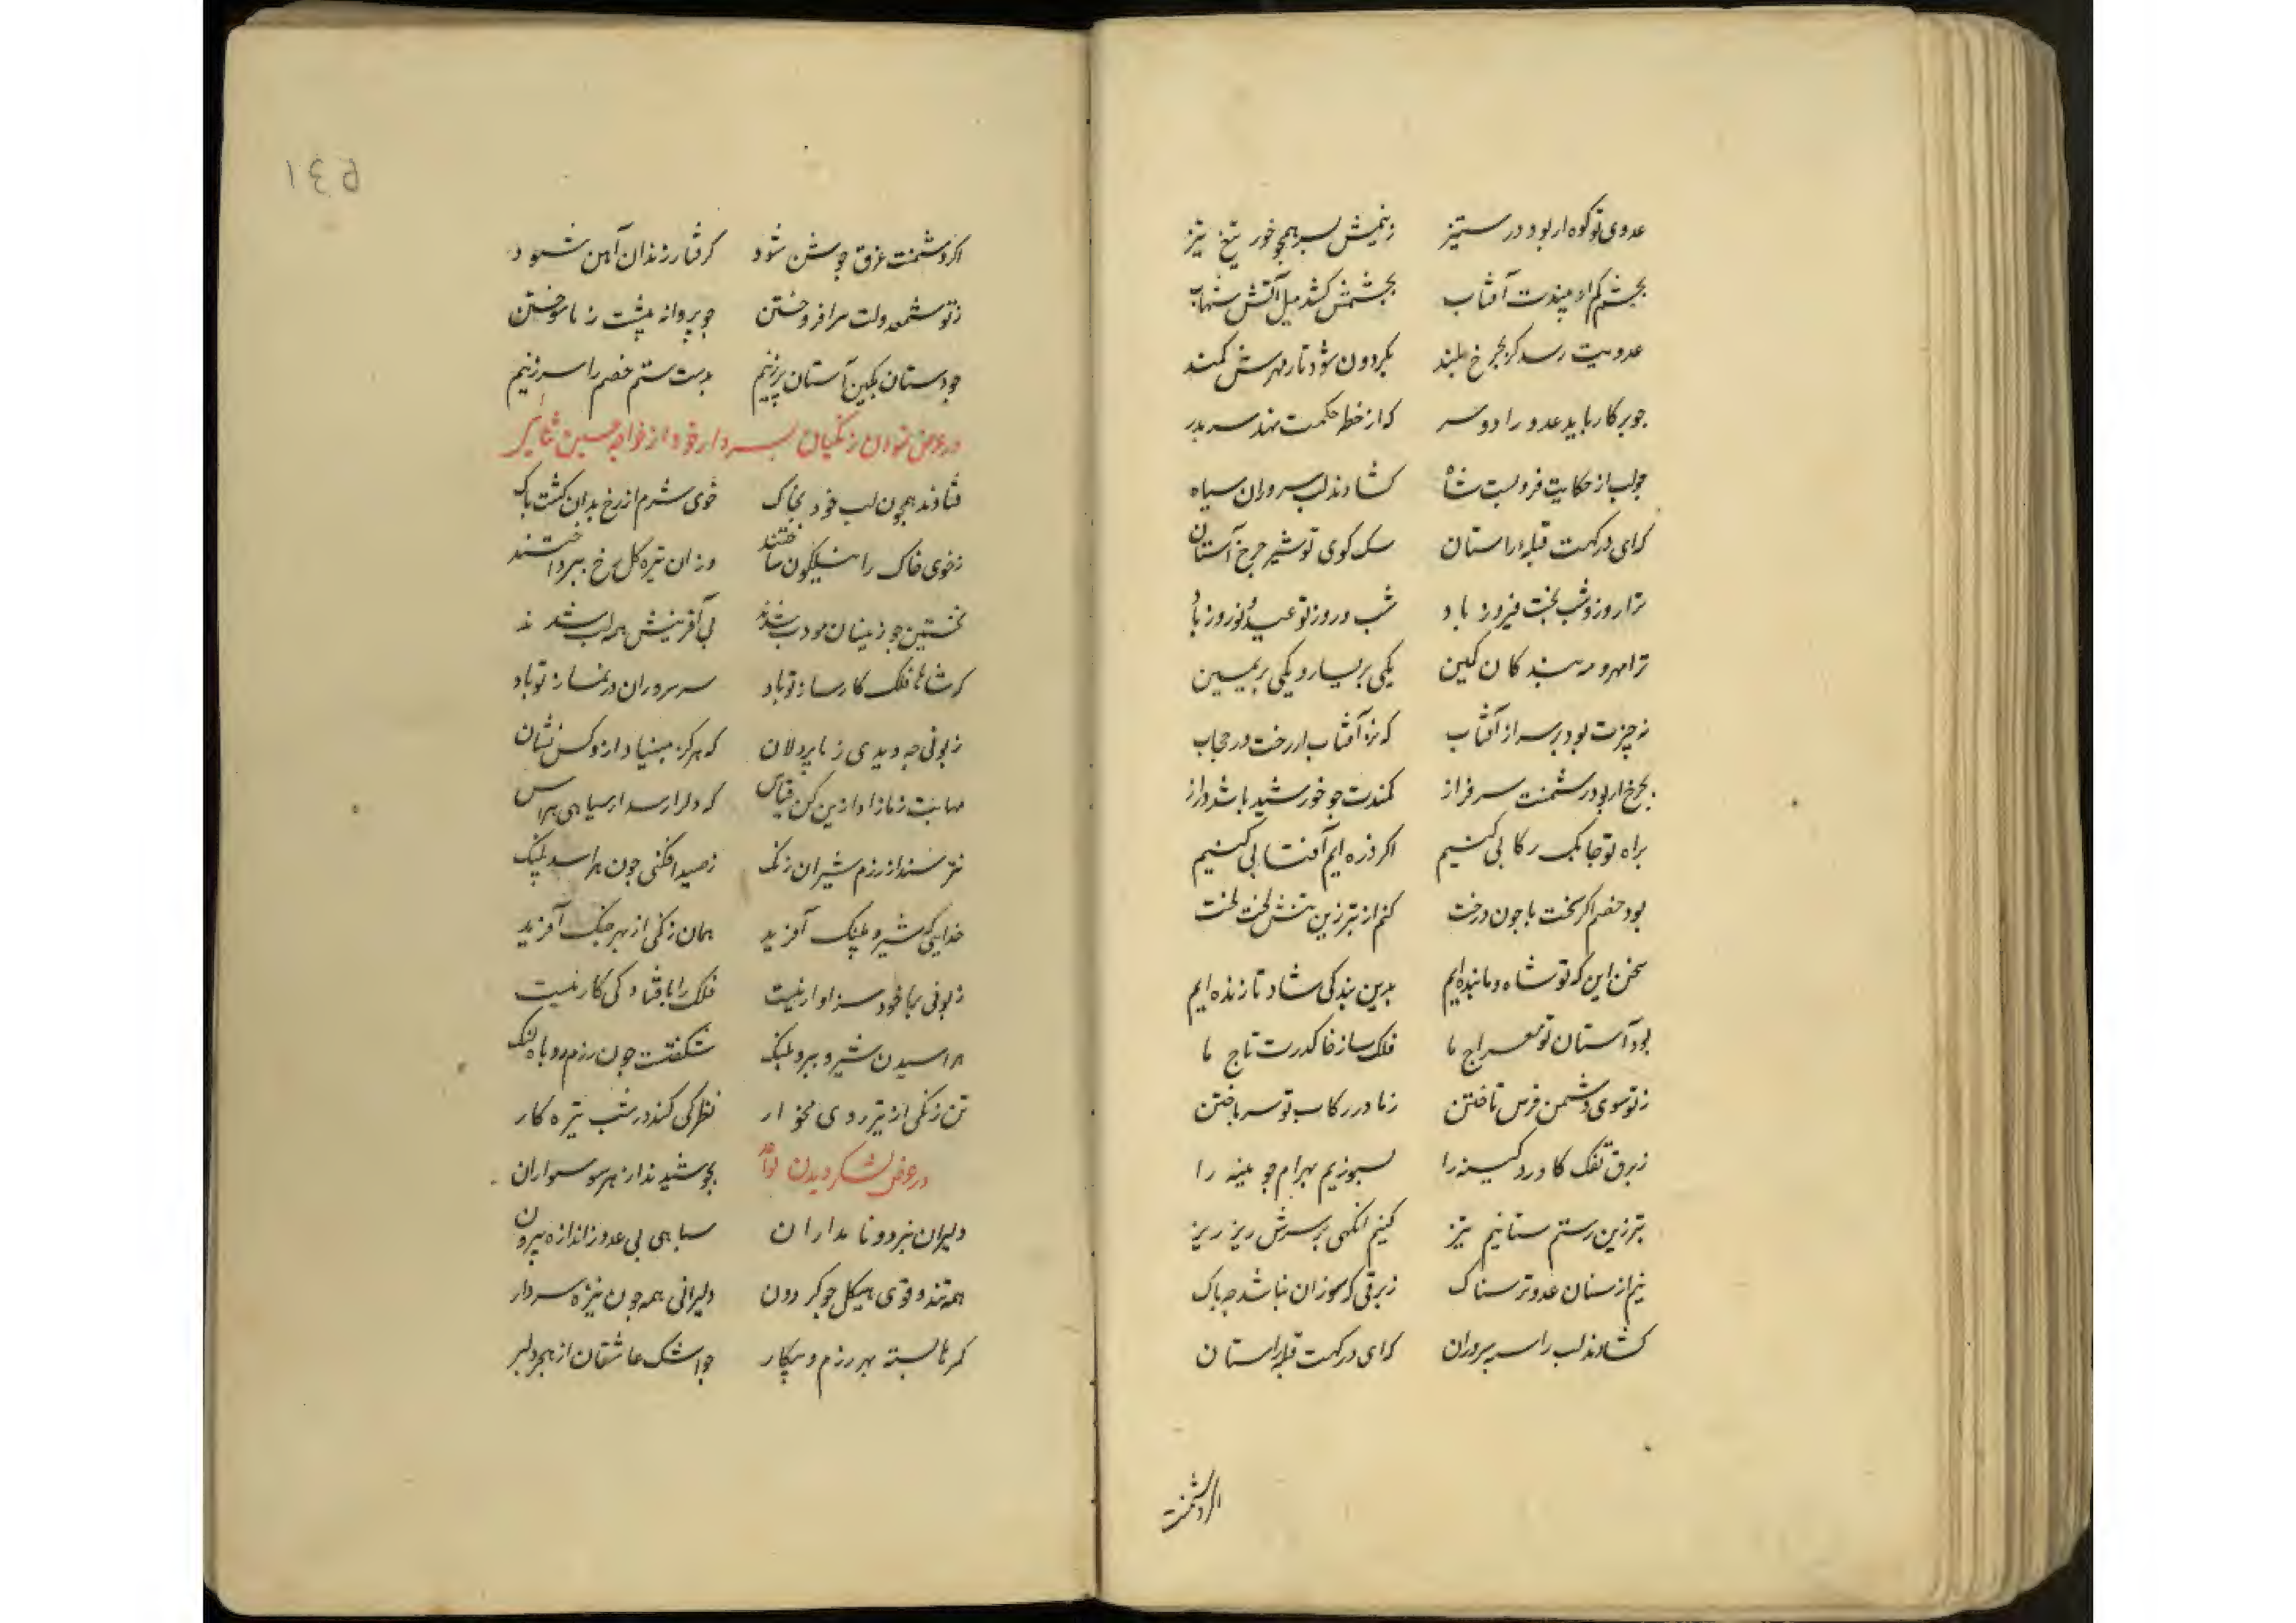 عدوی تو کوه ار بود در ستیز زنیمش بسر همچو خور تیغ تیز
بچشم کم ار بیندت آفتاب بچشمش کشد میل آتش شهاب
عدویت رسد گر بچرخ بلند بگردون شود تار مهرش کمند
چو پرکار باید عدو را دو سر که از خط حکمت نهد سر بدر
چو لب از حکایت فرو بست شاه گشادند لب سروران سپاه
که ای درگهت قبلهٔ راستان سک کوی تو شیر چرخ آستان
ترا روز و شب بخت فیروز باد شب و روز تو عید و نوروز باد
ترا مهر و مه بندگان کمین یکی بر یسار و یکی بر یمین
نه چترت بود بر سر از آفتاب که نه آفتاب از رخت در حجاب
بچرخ ار بود دشمنت سرفراز کمندت چو خورشید باشد دراز
براه تو چابک رکابی کنیم اگر ذره ایم آفتابی کنیم
بود خصم اگر سخت پا چون درخت کنم از تبرزین تنش لخت لخت
سخن این که تو شاه و ما بنده ایم بدین بندگی شاد تا زنده ایم
بود آستان تو معراج ما فلک ساز خاک درت تاج ما
ز تو سوی دشمن فرس تاختن ز ما در رکاب تو سر باختن
ز برق تفک کاورد کینه را بسوزیم بهرام چوبینه را
تبرزین رستم ستانیم تیز کنیم آنگهی بر سرش ریز ریز
نیم از سنان عدو ترسناک ز برقی که سوزان نباشد چه باک
گشادند لب را سپه پروران که ای درگهت قبله راستان
اگر دشمنت
اگر دشمنت غرق جوشن شود گرفتار زندان آهن شود
ز تو شمع دولت برافروختن چو پروانه پیشت ز ما سوختن
چو دستان بکین آستان برزنیم بدست ستم خصم را سر زنیم
در عرض نمودن زنگیان بسردار خود از خواجه حسین ثنائی
فتادند همچون لب خود بخاک خوی شرم از رخ بدان گشت پاک
ز خوی خاک را نیلگون ساختند وز ان تیره گل رخ بپرداختند
نخستین چو زینسان مودب شدند پی آفرینش همه لب شدند
که شاها فلک کارساز تو باد سر سروران در نماز تو باد
زبونی چه دیدی ز ما پردلان که هرگز مبیناد از و کس نشان
مهابت ز ما زاد ازین کن قیاس که دلرا رسد از سیاهی هراس
نترسند از رزم شیران زنگ ز صید افگنی چون هراسد پلنگ
خدایی که شیر و پلنگ آفرید همان زنگی از بهر جنگ آفرید
زبونی بما خود سزاوار نیست فلک را بافتادگی کار نیست
هراسیدن شیر و ببر و پلنگ شگفتست چون رزم روباه لنگ
تن زنگی از تیر روی مخوار نظر کی کند در شب تیره کار
در عرض لشکر دیدن بجوشیدند از هر سو سواران
دلیران نبرد و نامداران سپاهی بی عدد ز اندازه بیرون
همه تند و قوی هیکل چو گردون دلیرانی همه چون نیزه سردار
کمرها بسته بهر رزم و پیکار چو اشک عاشقان از هجر دلبر